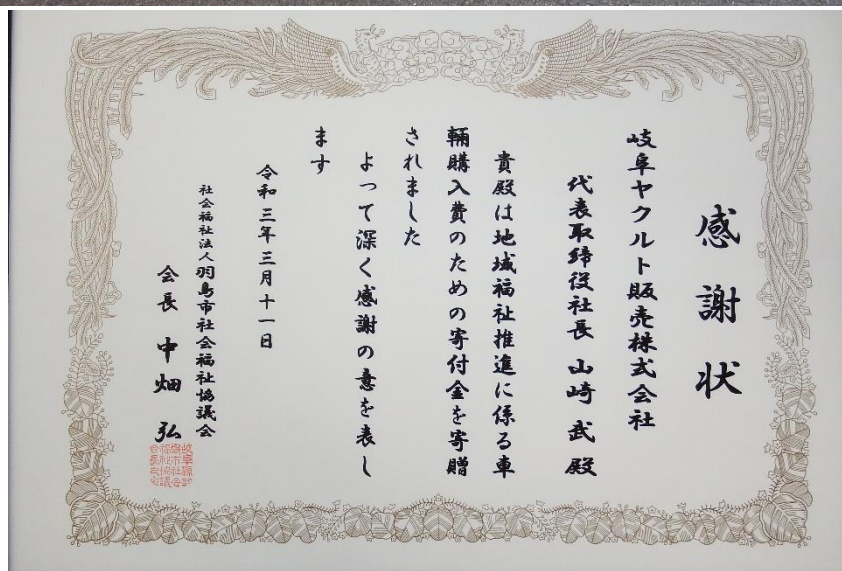 感謝状
岐阜ヤクルト販売株式会社
代表取締役社長 山崎 武 殿
貴殿は地域福祉推進に係る車
輛購入費のための寄付金を寄贈
されました
よって深く感謝の意を表し
ます
令和三年三月十一日
社会福祉法人 羽島市社会福祉協議会
会長 中畑 弘